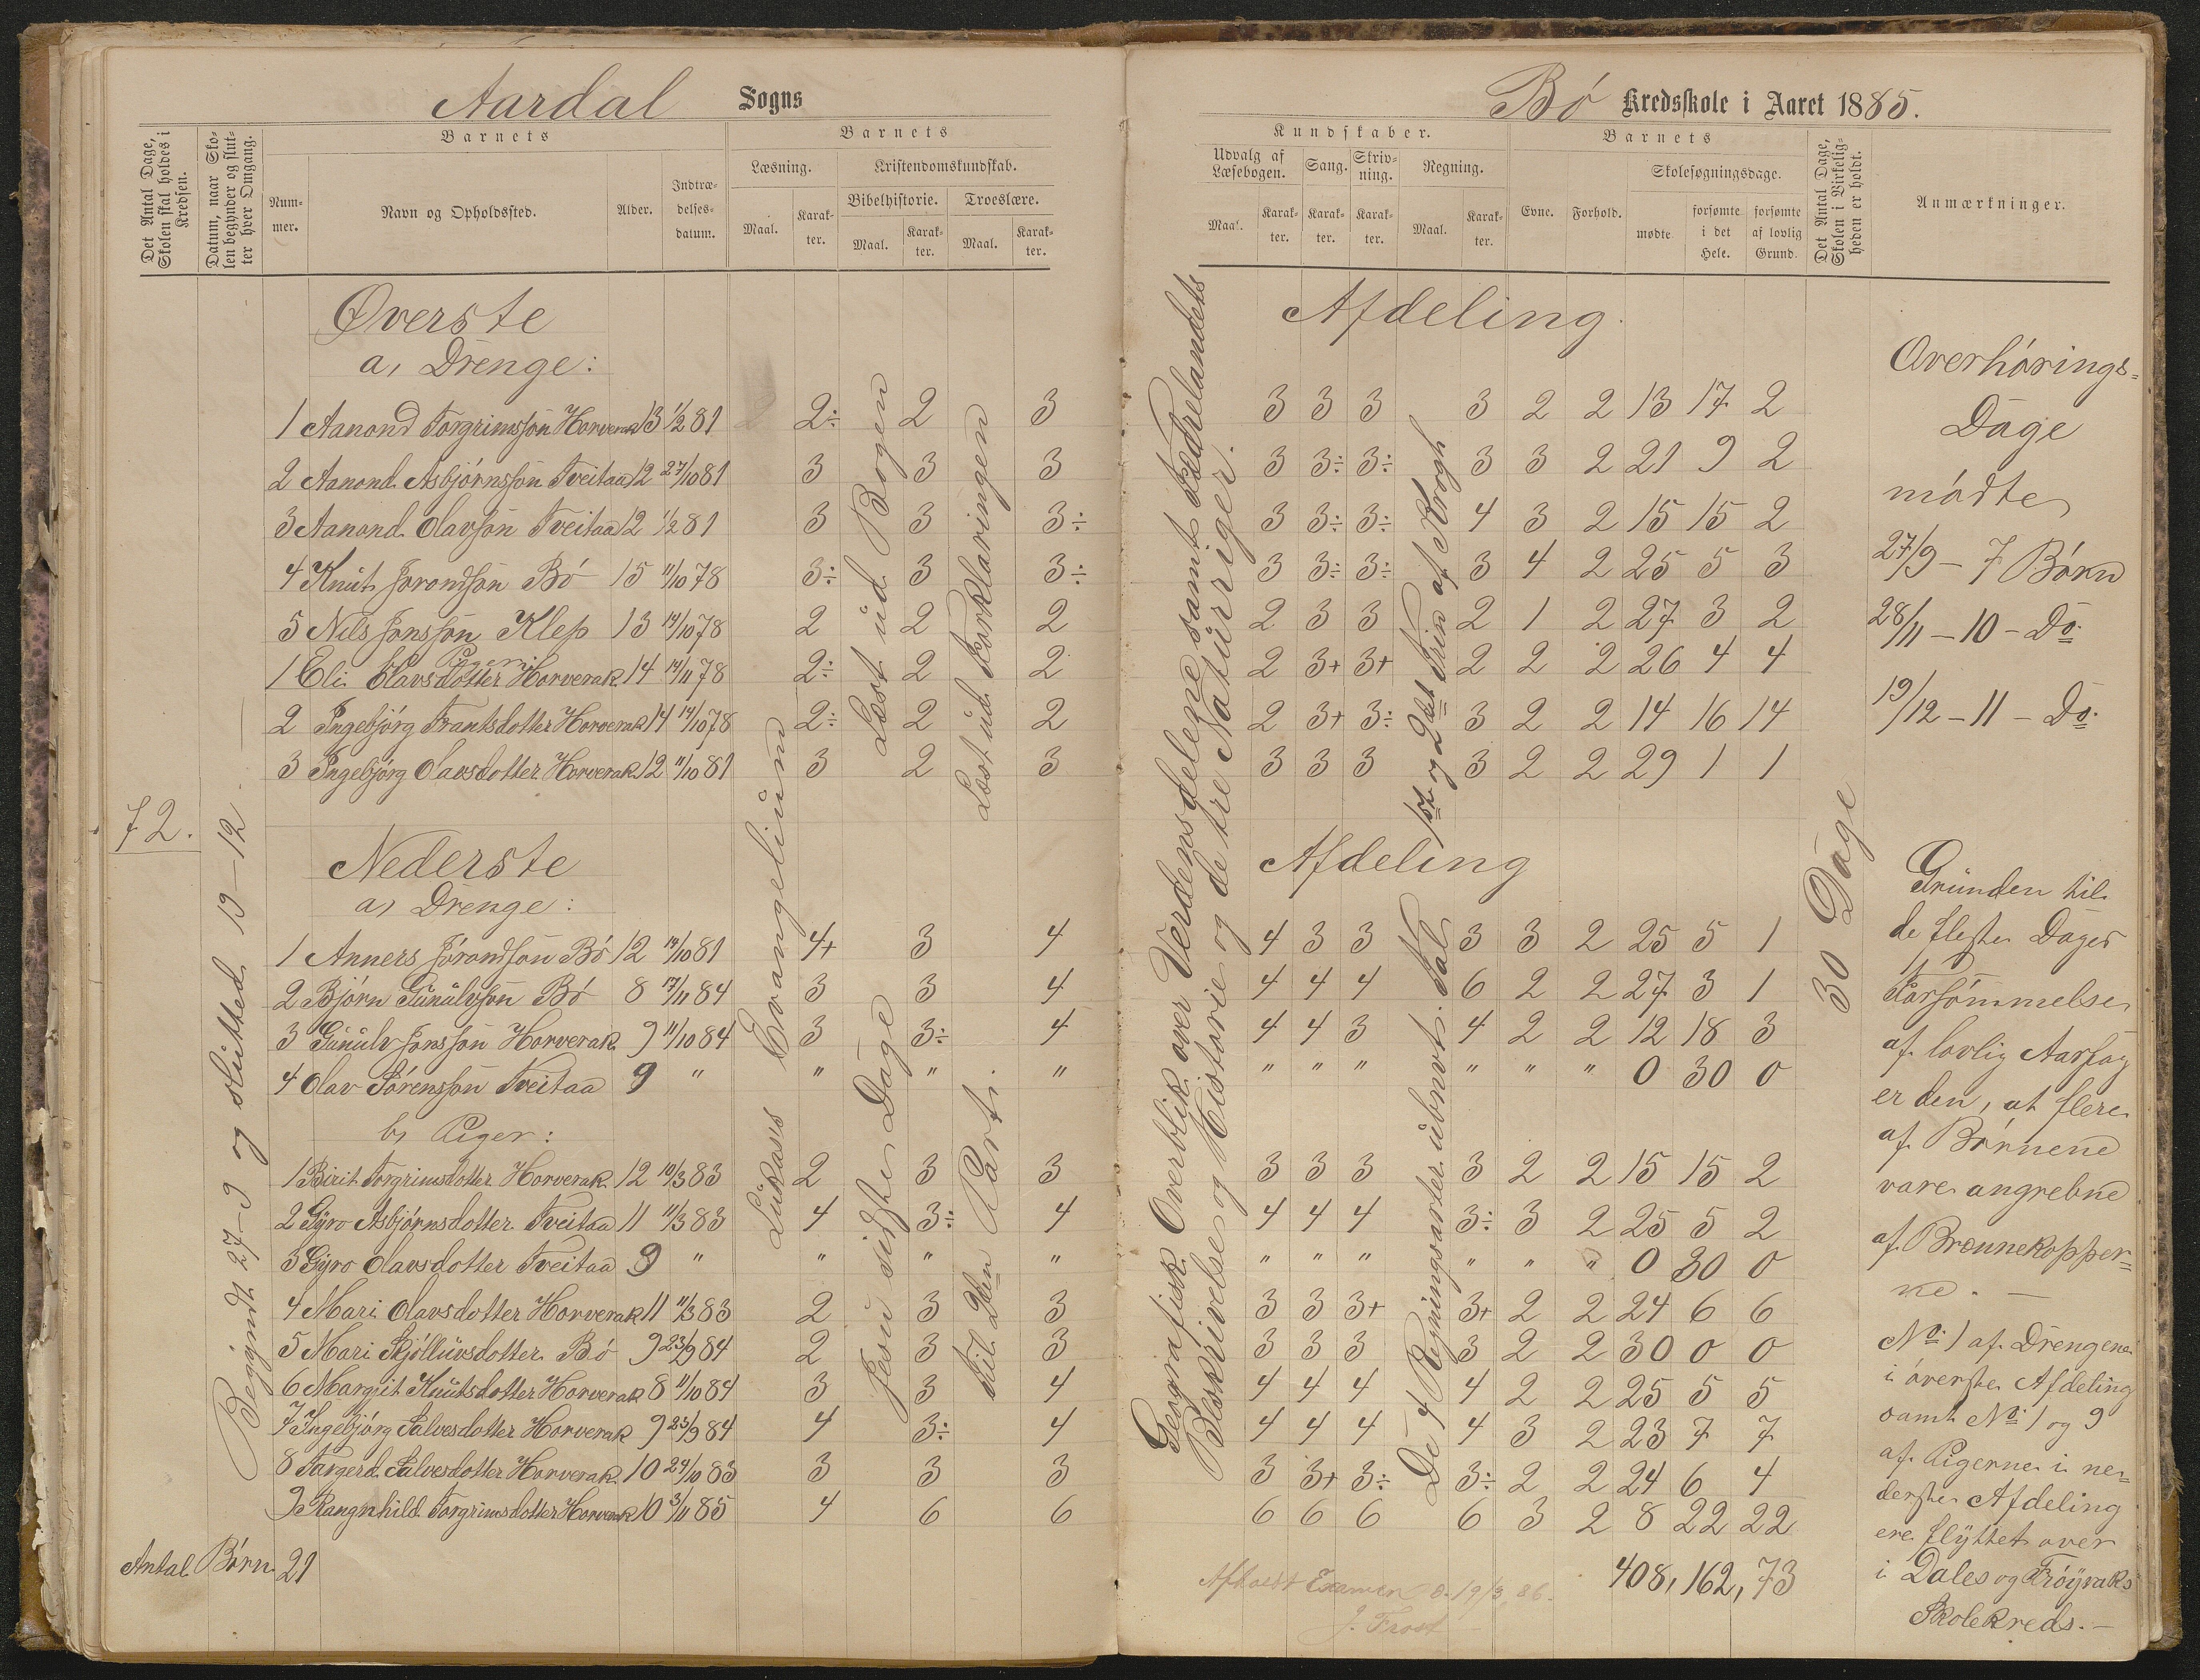 Aardal Sogns
Bó Kredsskole i Aaret 1885.
Det Antal Dage, Skolen skal holdes i Kredsen.
Datum, naar Skolen begynder og slutter hver Omgang.
Barnets
Nummer.
Navn og Opholdssted.
Alder.
Indtrædelsesdatum.
Barnets
Læsning.
Maal.
Karakter.
Kristendomskundskab.
Bibelhistorie.
Maal.
Karakter.
Troeslære.
Maal.
Karakter.
Kundskaber.
Udvalg af Læsebogen.
Maal.
Karakter.
Sang.
Karakter.
Skrivning.
Karakter.
Regning.
Maal.
Karakter.
Barnets
Evne.
Forhold.
Skolesøgningsdage.
mødte
forsømte i det Hele.
forsømte af lovlig Grund.
Det Antal Dage, Skolen i Virkeligheden er holdt.
Anmærkninger.
72.
Begyndt 27-9 og sluttet 19-12.
Lukas's Evangelium
Læst ud Bogen
Læst ud Forklaringen
Jesu sidste Dage
til 2den Part.
Geografisk Overblik over Verdensdelene samt Fædrelandets
Beskrivelse og Historie og de tre Naturriger.
1ste og 2det Trin af Krogh
De 4 Regningsarter ubnvt. Tal
30 Dage
Øverste Afdeling.
a, Drenge:
1 Aanond Torgrimssøn Horverak 13 1/2 81 2÷ 2 3 3 3 3 3 2 2 13 17 2
2 Aanond Asbjórnssón Tveitaa 12 27/10 81 3 3 3 3 3÷ 3÷ 3 3 2 21 9 2
3 Aanond Olavsón Tveitaa 12 1/2 81 3 3 3÷ 3 3÷ 3÷ 4 3 2 15 15 2
4 Knut Jorondsón Bó 15 11/10 78 3÷ 3 3÷ 3 3÷ 3÷ 3 4 2 25 5 3
5 Nils Jonssón Klep 13 14/10 78 2 2 2 2 3 3 2 1 2 27 3 2
Piger:
1 Eli Olavsdotter Horverak 14 14/11 78 2÷ 2 2 2 3+ 3+ 2 2 2 26 4 4
2 Ingebjórg Frantsdotter Horverak 14 14/10 78 2÷ 2 2 2 3+ 3÷ 3 2 2 14 16 14
3 Ingebjórg Olavsdotter Horverak 12 11/10 81 3 2 3 3 3 3 3 2 2 29 1 1
Nederste Afdeling
a, Drenge:
1 Anners Jórondsón Bó 12 19/10 81 4+ 3 4 4 3 3 3 3 2 25 5 1
2 Bjórn Gunulvsón Bó 8 17/11 84 3 3 4 4 4 4 6 2 2 27 3 1
3 Gunulv Jonssón Horverak 9 11/10 84 3 3÷ 4 4 4 3 4 2 2 12 18 3
4 Olav Sórenssón Tveitaa 9 " " " " " " " " " " 0 30 0
b, Piger:
1 Birit Torgrimsdotter Horverak 12 10/3 83 2 3 3 3 3 3 3 2 2 15 15 2
2 Gyro Asbjórnsdotter Tveitaa 11 11/3 83 4 3÷ 4 4 4 4 3÷ 3 2 25 5 2
3 Gyro Olavsdotter Tveitaa 9 " " " " " " " " " " 0 30 0
4 Mari Olavsdotter Horverak 11 11/3 83 2 3 3 3 3 3+ 3+ 2 2 24 6 6
5 Mari Skjólluvsdotter Bó 9 23/9 84 2 3 3 3 3 3 3 2 2 30 0 0
6 Margjit Knutsdotter Horverak 8 11/10 84 3 3 4 4 4 4 4 2 2 25 5 5
7 Ingebjórg Salvesdotter Horverak 9 23/9 84 4 3÷ 4 4 4 4 4 3 2 23 7 7
8 Targerd Salvesdotter Horverak 10 24/10 83 3 3 3 3 3+ 3÷ 3÷ 2 2 24 6 4
9 Rangnhild Torgrimsdotter Horverak 10 3/11 85 4 6 6 6 6 6 6 3 2 8 22 22
Antal Børn 21
408, 162, 73
Afholdt Examen d. 19/3 86.
J. Frost
Overhórings-
Dage
mødte
27/9 - 7 Børn
28/11 - 10 - Do.
19/12 - 11 - Do.
Grunden til
de fleste Dages
Forsómmelse
af lovlig Aarsag
er den, at flere
af Børnene
vare angrebne
af Brennekopper-
ne. —
No. 1 af Drengene
i óverste Afdeling
samt No. 1 og 9
af Pigerne i ne-
derste Afdeling
ere flyttet over
i Dales og Frøyraks
Skolekreds. —